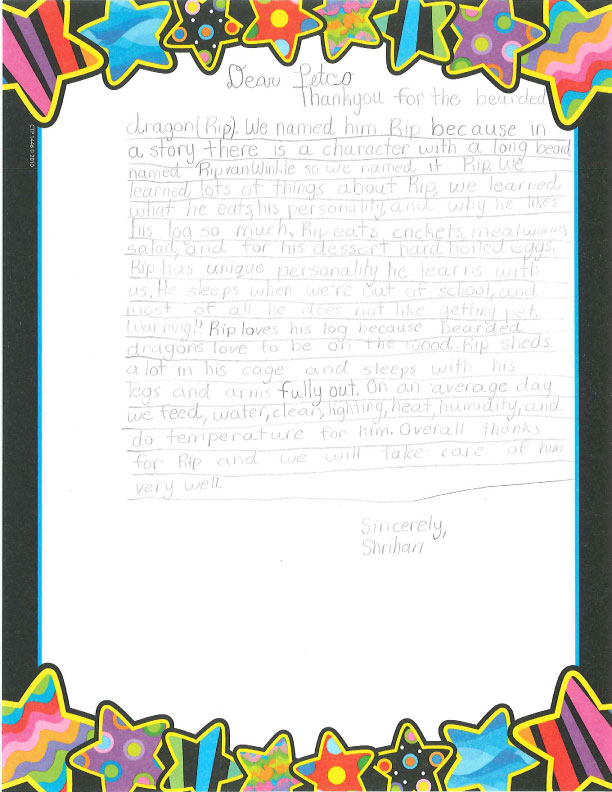 Dear Petco
Thankyou for the bearded
dragon(Rip). We named him Rip because in
a story there is a character with a long beard
named RipvanWinkle so we named it Rip. We
learned lots of things about Rip, we learned
what he eats, his personality, and why he likes
his log so much. Rip eats crickets, mealworms
salad, and for his dessert hard boiled eggs.
Rip has unique personality he learns with
us. He sleeps when we're out of school, and
most of all he does not like getting pet.
Warning!! Rip loves his log because bearded
dragons love to be on the wood. Rip sheds
a lot in his cage and sleeps with his
legs and arms fully out. On an average day
we feed, water, clean, lighting, heat, humidity, and
do temperature for him. Overall thanks
for Rip and we will take care of him
very well.
Sincerely,
Shrihan